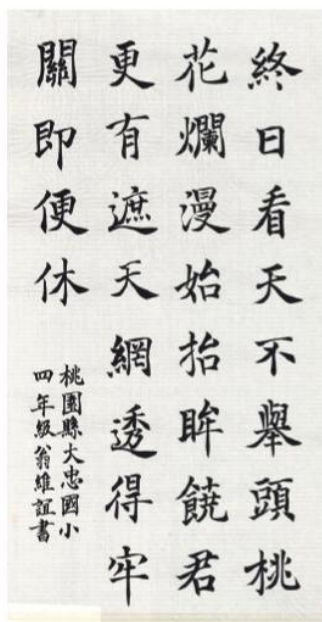 終日看天不舉頭桃
花爛漫始抬眸饒君
更有遮天網透得牢
關即便休
桃園縣大忠國小
四年級翁維誼書